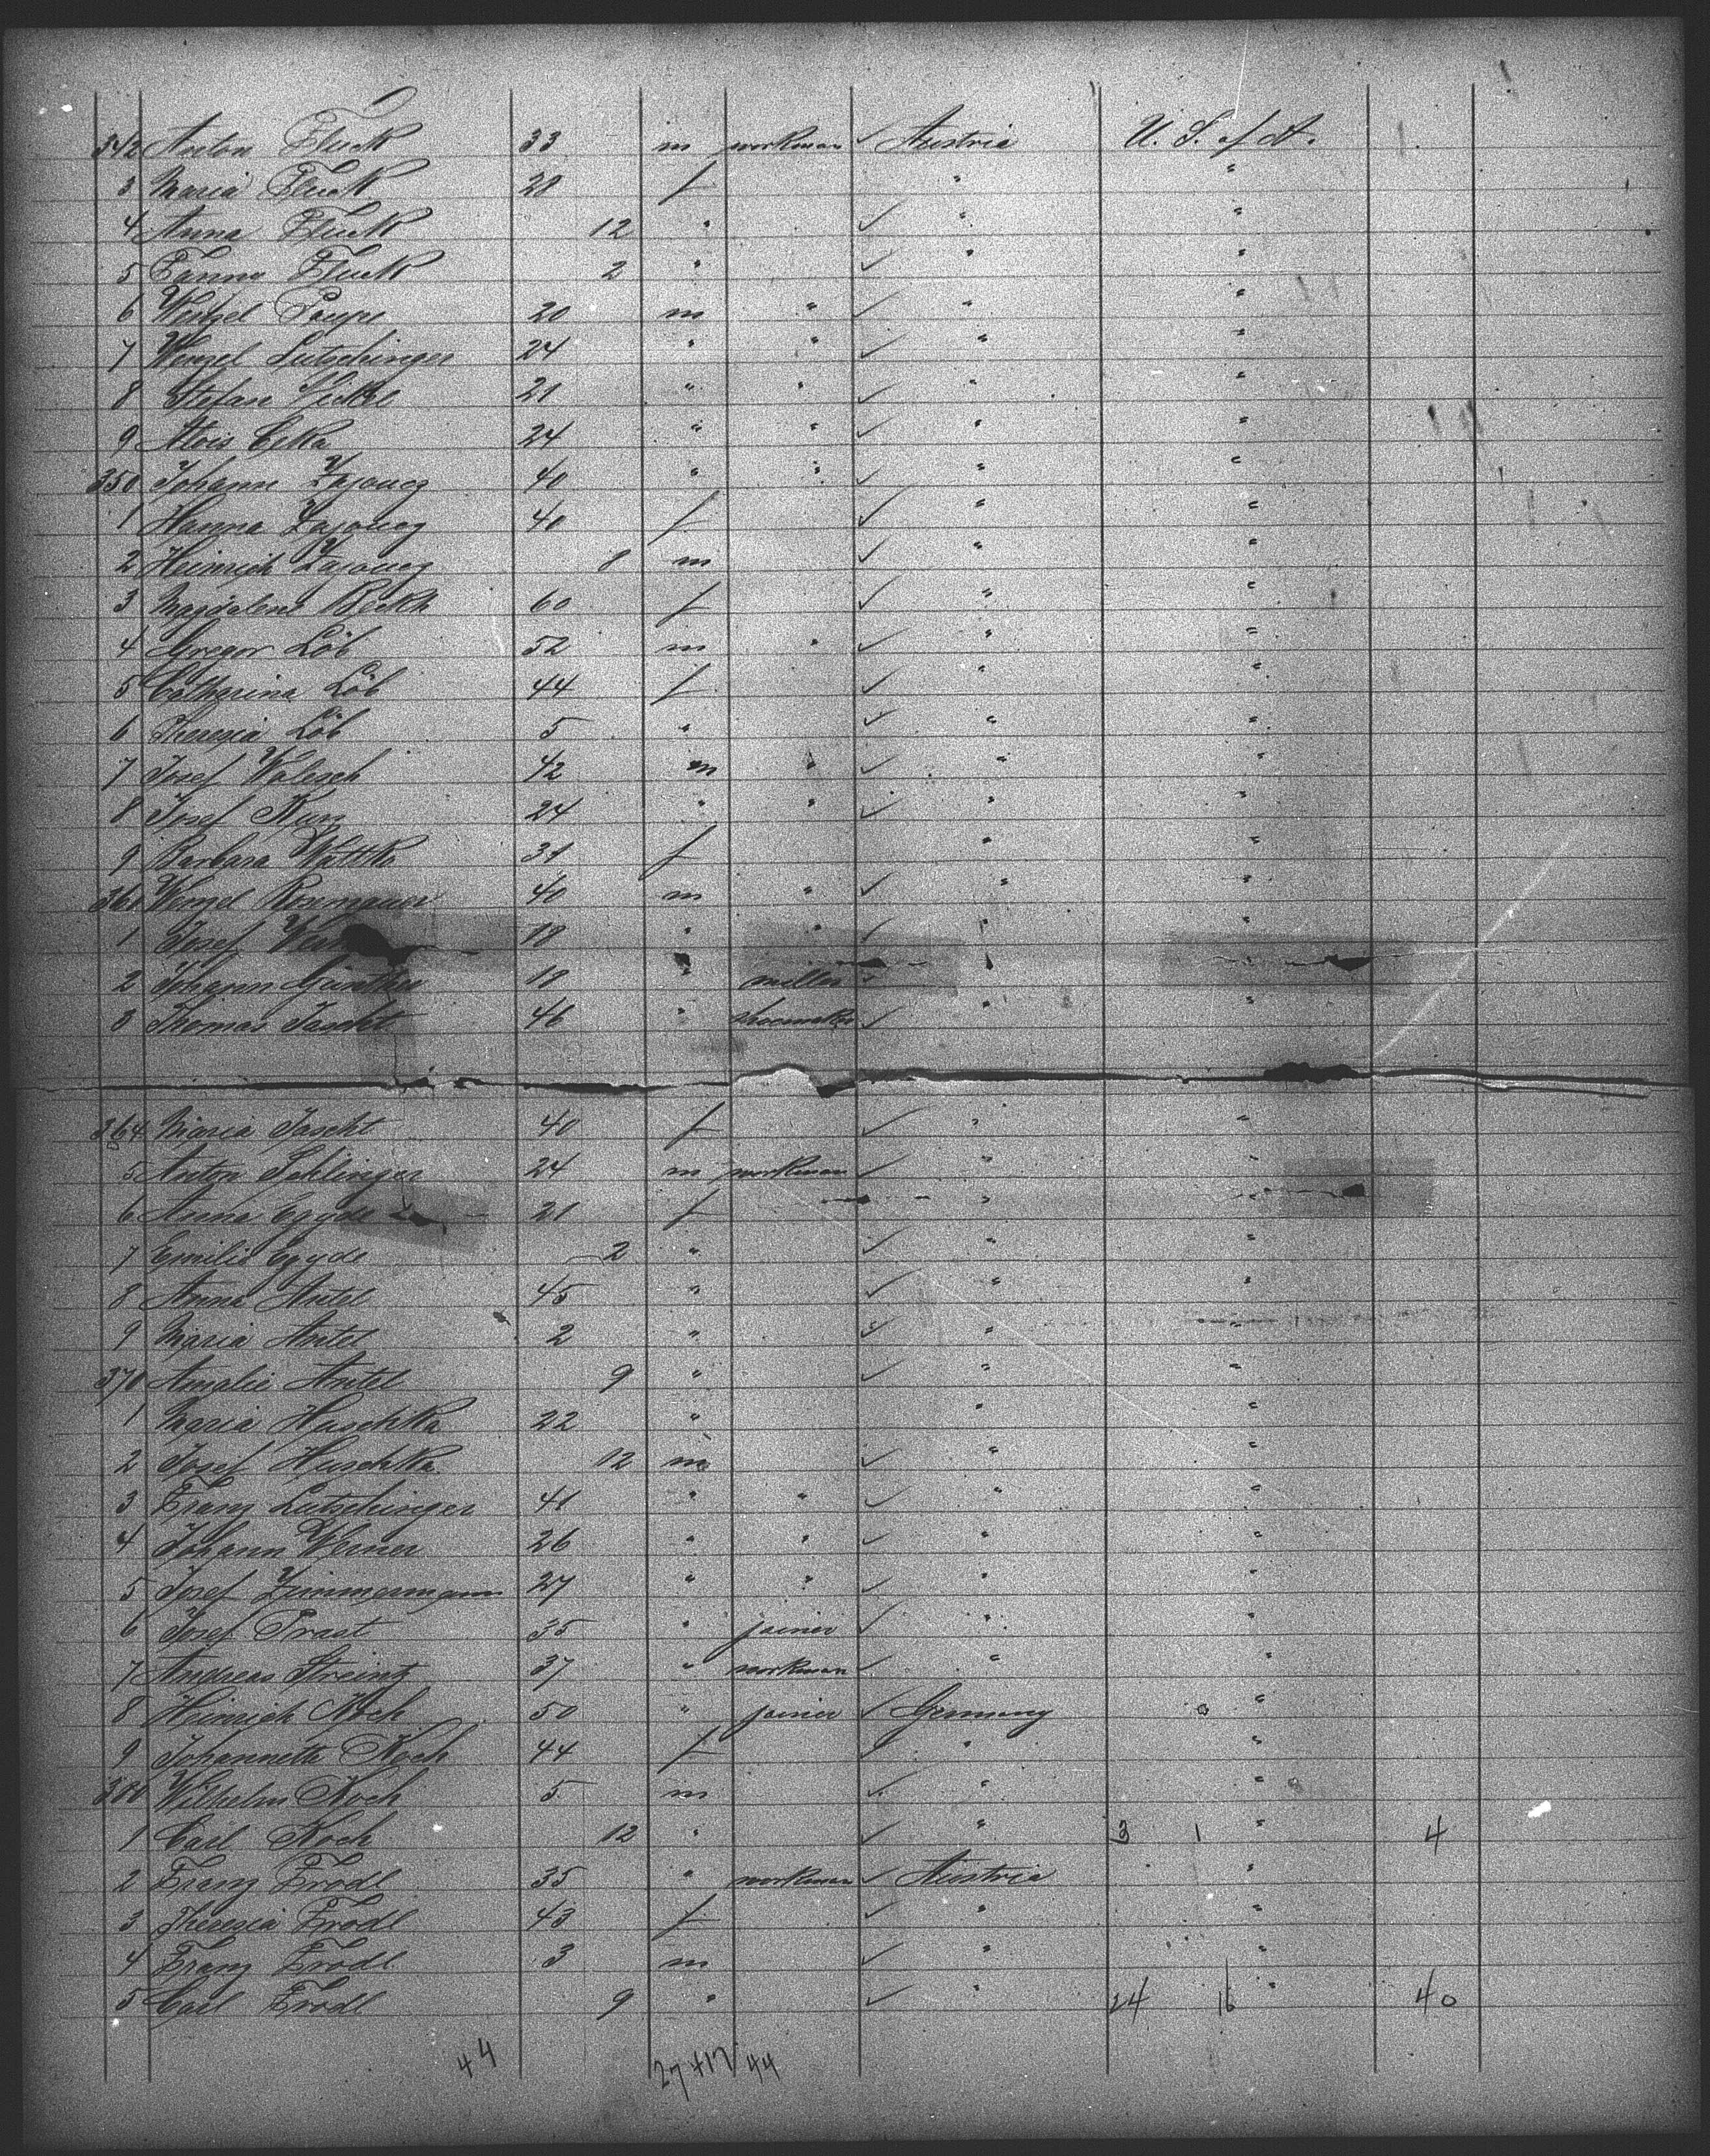 342 Anton Fluck 33 m workman ✓ Austria U. S. of A.
3 Maria Fluck 28 f " "
4 Anna Fluck 12 " ✓ " "
5 Fanny Fluck 2 " ✓ " "
6 Wenzel Poupe 20 m " ✓ " "
7 Wenzel Lutschinger 24 " " ✓ " "
8 Stefan 21 " " ✓ " "
9 Alois Ceka 24 " " ✓ " "
350 Johann Zajoncz 40 " " ✓ " "
1 Hanna Zajoncz 40 f ✓ " "
2 Heinrich Zajoncz 8 m ✓ " "
3 Magdalena 60 f ✓ " "
4 Gregor Löb 52 m " ✓ " "
5 Catharina Löb 44 f ✓ " "
6 Theresia Löb 5 " ✓ " "
7 Josef Walesch 42 m " ✓ " "
8 Josef Kurz 24 " " ✓ " "
9 Barbara 31 f " "
360 Wenzel Rosenauer 40 m " ✓ " "
1 Josef 18 " " ✓ " "
2 Johann Günther 18 " miller ✓ "
3 Thomas Jascht 46 " shoemaker ✓ " "
364 Maria Jascht 40 f ✓ " "
5 Anton Sehlinger 24 m workman ✓ "
6 Anna Egyde 21 f " "
7 Emilie Egyde 2 " ✓ " "
8 Anna Antel 45 " ✓ " "
9 Maria Antel 2 " ✓ " "
370 Amalie Antel 9 " ✓ " "
1 Maria Huschka 22 " " "
2 Josef Huschka 12 m ✓ " "
3 Franz Lutschinger 41 " " ✓ " "
4 Johann Werner 26 " " ✓ " "
5 Josef Zimmermann 27 " " ✓ " "
6 Josef Prast 35 " joiner ✓ " "
7 Andreas Streintz 37 " workman ✓ " "
8 Heinrich Koch 50 " joiner ✓ Germany "
9 Johannetta Koch 44 f ✓ " "
380 Wilhelm Koch 5 m ✓ " "
1 Carl Koch 12 " ✓ " 3 1 " 4
2 Franz Frodl 35 " workman ✓ Austria "
3 Theresia Frodl 43 f ✓ " "
4 Franz Frodl 3 m ✓ " "
5 Carl Frodl 9 " ✓ " 24 16 " 40
44 27+17/44